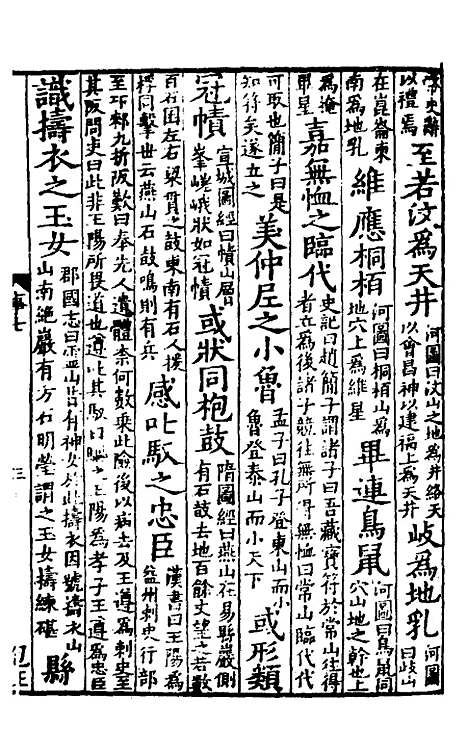 掌史辭
以禮焉
至若汶為天井
河圖曰汶山之地為井絡天
以會昌神以建福上為天井
岐為地乳
河圖
曰岐山
在崑崙東
南為地乳
維應桐栢
河圖曰桐栢山為
地穴上為維星
畢連鳥鼠
河圖曰鳥鼠同
穴山地之幹也上
為掩
畢星
嘉無恤之臨代
史記曰趙簡子謂諸子曰吾藏寶符於常山往得
者立為後諸子競往無所得無恤曰常山臨代代
可取也簡子曰是
知符矣遂立之
美仲尼之小魯
孟子曰孔子登東山而小
魯登泰山而小天下
或形類
冠幘
宣城圖經曰幘山層
峯嵯峨狀如冠幘
或狀同枹鼓
隋圖經曰燕山在易縣巖側
有石鼓去地百餘丈望之若數
百石囷左右梁貫之鼓東南有石人援
桴同擊世云燕山石鼓鳴則有兵
感叱馭之忠臣
漢書曰王陽為
益州刺史行部
至邛郲九折阪歎曰奉先人遺體柰何數乘此險後以病去及王遵為刺史至
其阪問吏曰此非王陽所畏道也遵叱其馭曰驅之王陽為孝子王遵為忠臣
識擣衣之玉女
郡國志曰山昔有神女於此擣衣因號擣衣山
山南絕巖有方石明瑩謂之玉女擣練碪
縣
三